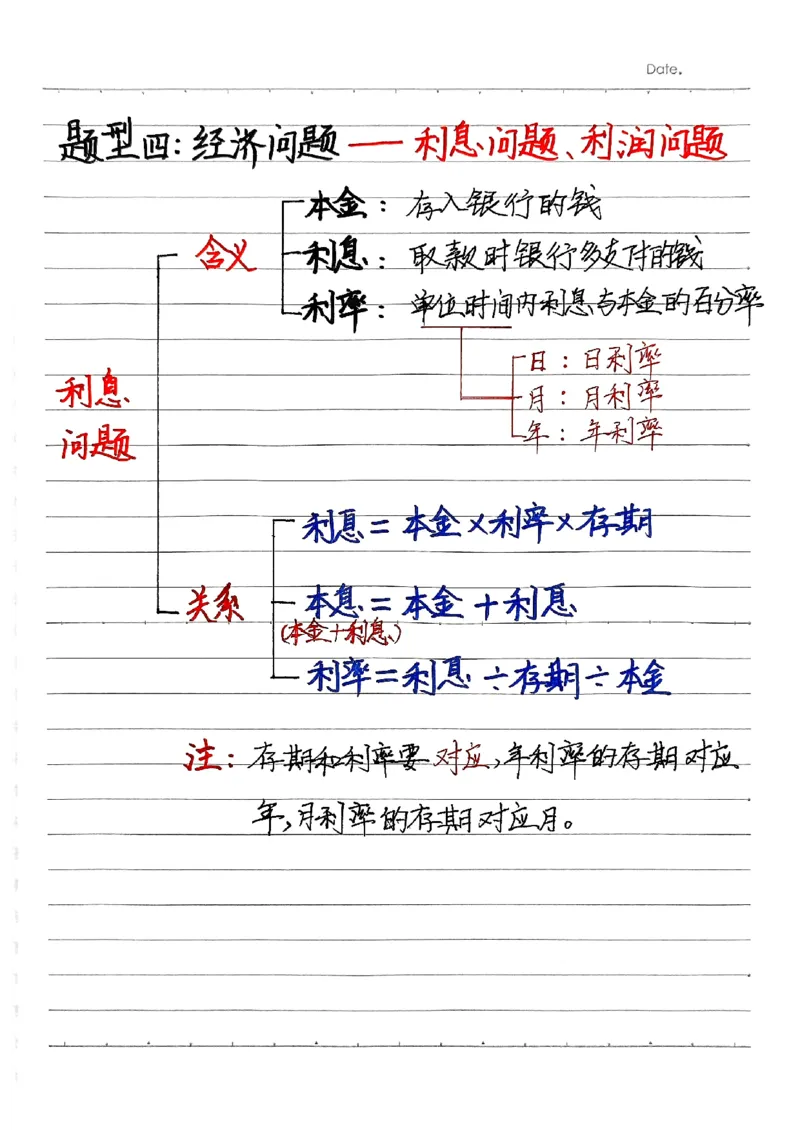 Date.
题型四：经济问题——利息问题、利润问题
本金：存入银行的钱
含义
利息：取款时银行多支付的钱
利率：单位时间内利息与本金的百分率
日：日利率
利息
月：月利率
问题
年：年利率
利息＝本金×利率×存期
关系
本息＝本金＋利息
(本金＋利息)
利率＝利息÷存期÷本金
注：存期和利率要对应,年利率的存期对应
年,月利率的存期对应月。